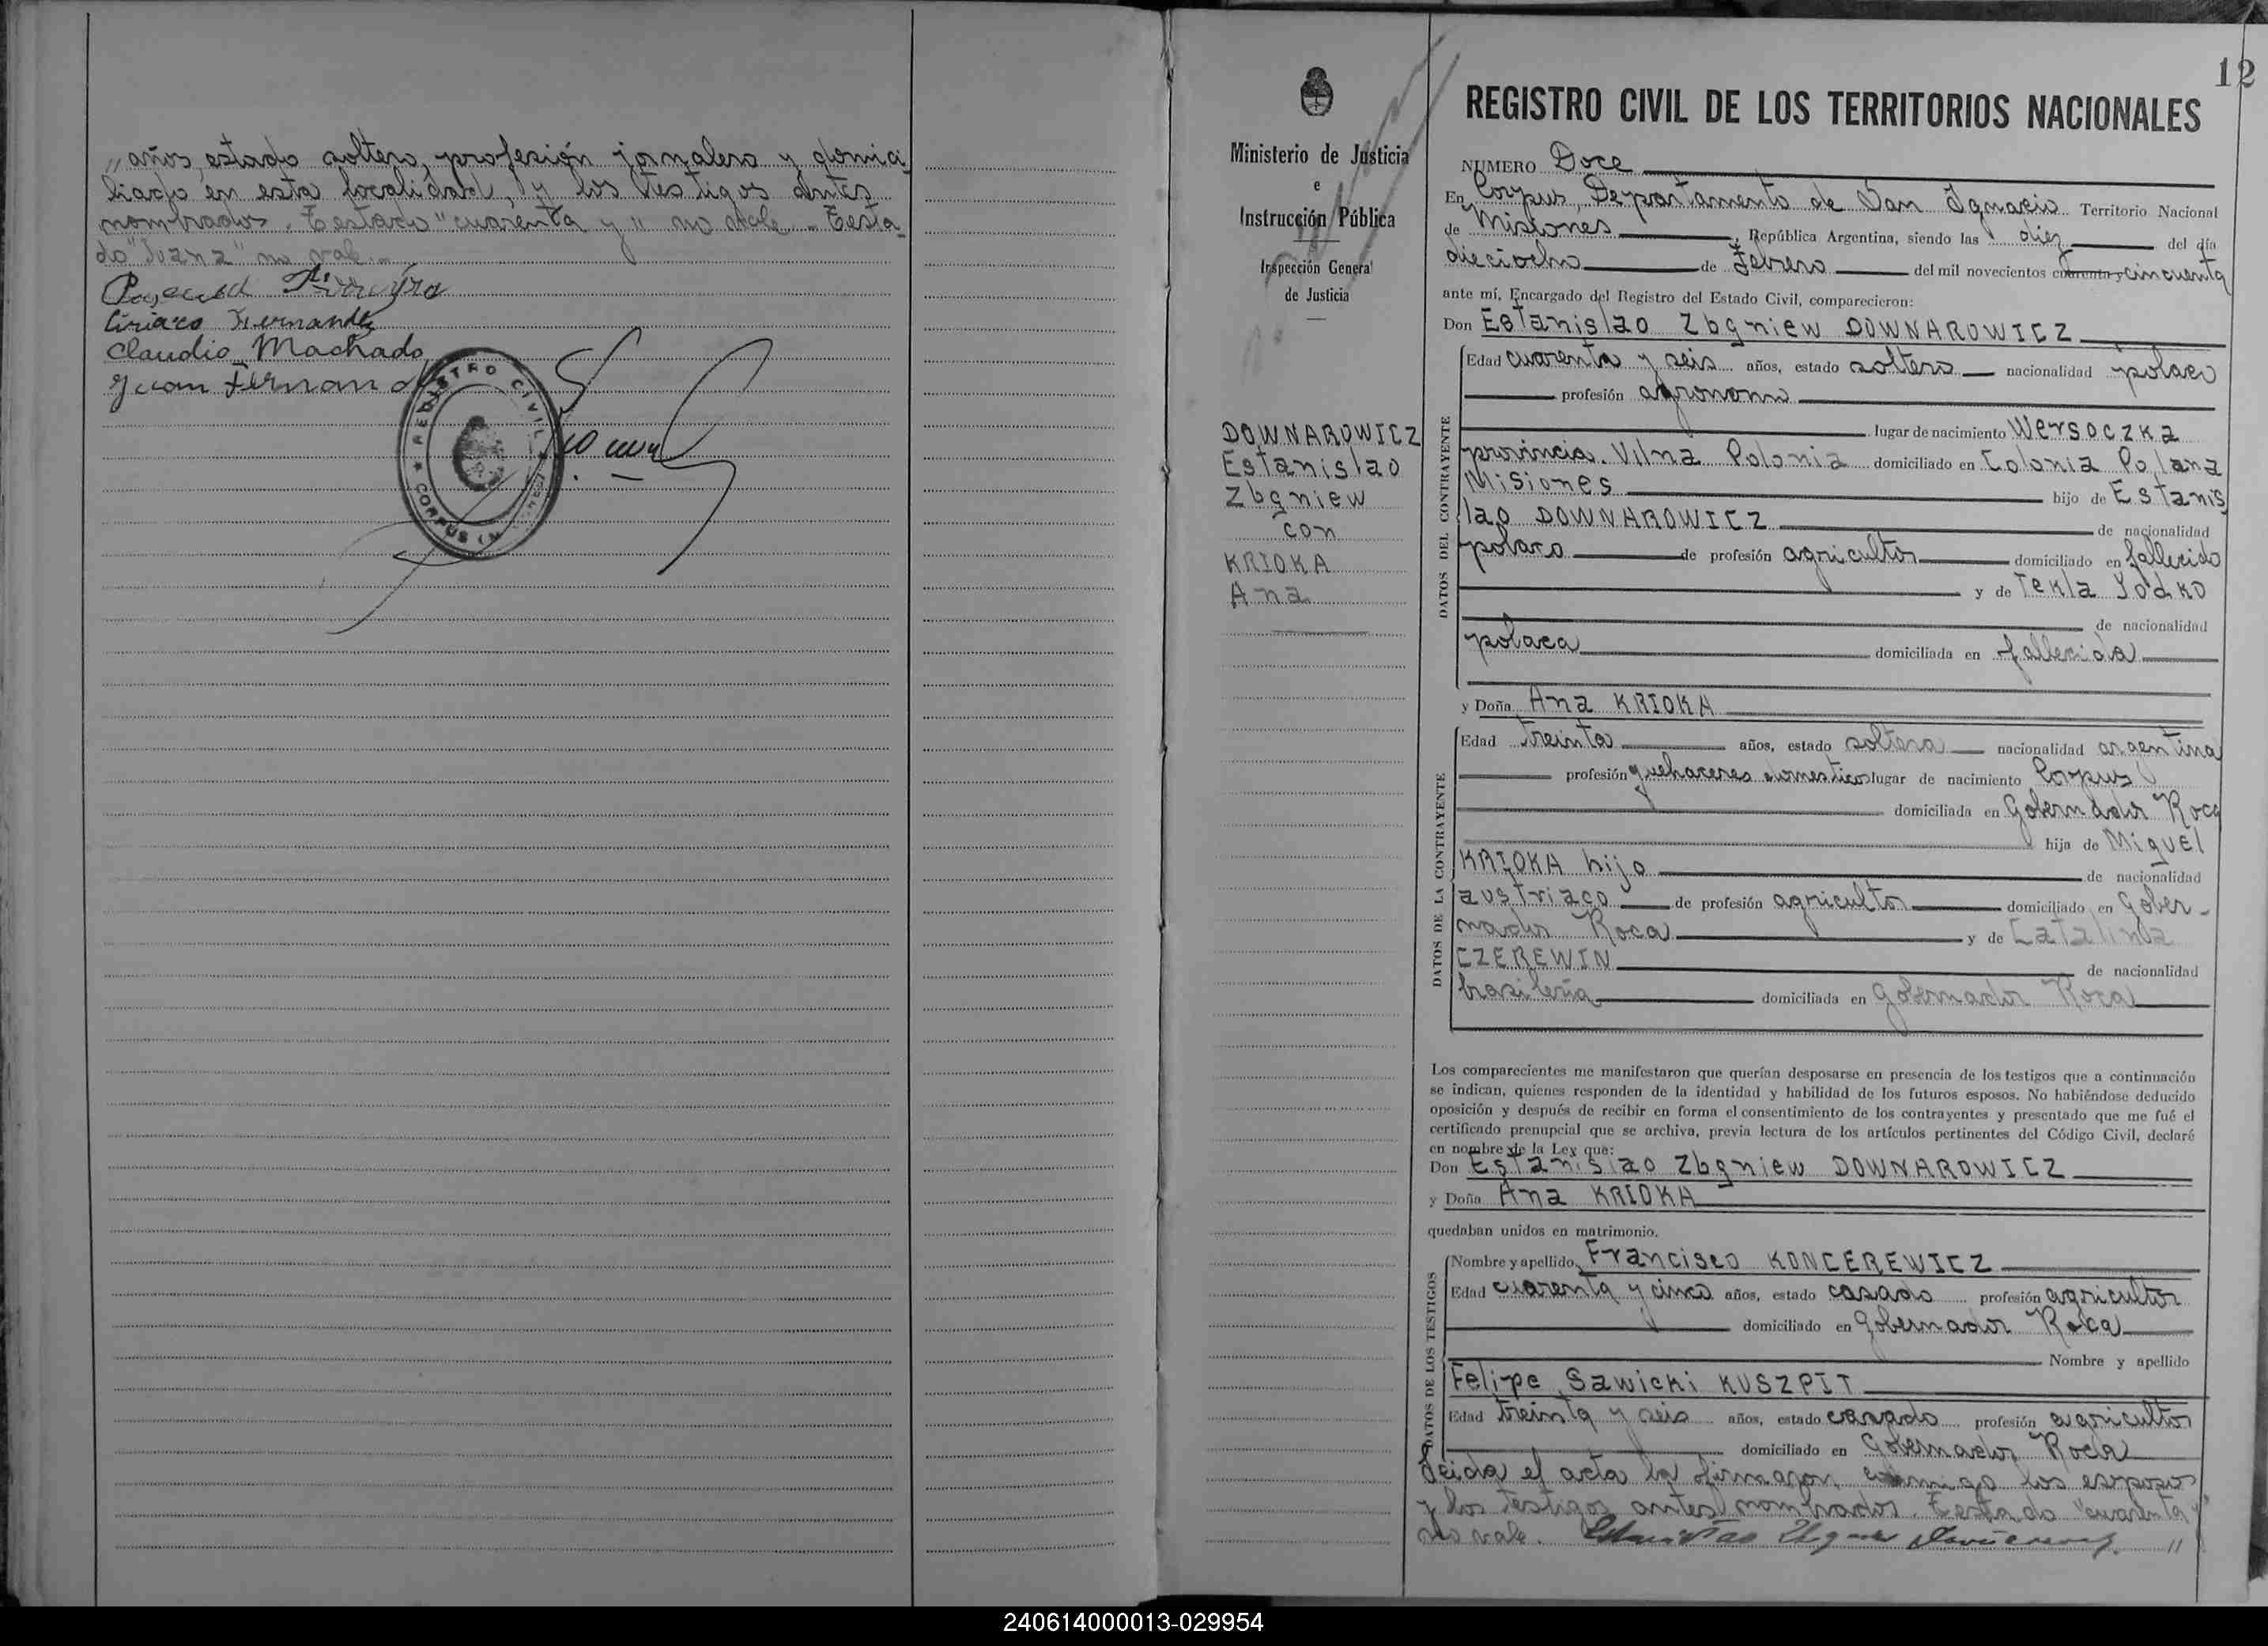 „ años, estado soltero, profesión jornalero y domici
liado en esta localidad, y los testigos antes
nombrados. Testado "cuarenta y" no vale. Testa
do "Juana" no vale.-
Ciriaco Fernandez
Claudio Machado
Juan Fernand
REGISTRO CIVIL
CORPUS
12
Ministerio de Justicia
e
Instrucción Pública
Inspección General
de Justicia
DOWNAROWICZ
Estanislao
Zbgniew
con
KRIOKA
Ana
REGISTRO CIVIL DE LOS TERRITORIOS NACIONALES
NUMERO Doce
En Corpus, Departamento de San Ignacio Territorio Nacional
de Misiones, República Argentina, siendo las diez del día
dieciocho de Febrero del mil novecientos cuarenta y cincuenta
ante mí, Encargado del Registro del Estado Civil, comparecieron:
Don Estanislao Zbgniew DOWNAROWICZ
DATOS DEL CONTRAYENTE
Edad cuarenta y seis años, estado soltero nacionalidad polaco
profesión agronomo
lugar de nacimiento Wersoczka
provincia. Vilna Polonia domiciliado en Colonia Polana
Misiones hijo de Estanis
lao DOWNAROWICZ de nacionalidad
polaco de profesión agricultor domiciliado en fallecido
y de Tekla Yodko
de nacionalidad
polaca domiciliada en fallecida
y Doña Ana KRIOKA
DATOS DE LA CONTRAYENTE
Edad treinta años, estado soltera nacionalidad argentina
profesión quehaceres domesticos lugar de nacimiento Corpus
domiciliada en Gobernador Roca
hija de Miguel
KRIOKA hijo de nacionalidad
austriaco de profesión agricultor domiciliado en Gober-
nador Roca y de Catalina
CZEREWIN de nacionalidad
brasileña domiciliada en Gobernador Roca
Los comparecientes me manifestaron que querían desposarse en presencia de los testigos que a continuación
se indican, quienes responden de la identidad y habilidad de los futuros esposos. No habiéndose deducido
oposición y después de recibir en forma el consentimiento de los contrayentes y presentado que me fué el
certificado prenupcial que se archiva, previa lectura de los artículos pertinentes del Código Civil, declaré
en nombre de la Ley que:
Don Estanislao Zbgniew DOWNAROWICZ
y Doña Ana KRIOKA
quedaban unidos en matrimonio.
DATOS DE LOS TESTIGOS
Nombre y apellido Francisco KONCEREWICZ
Edad cuarenta y cinco años, estado casado profesión agricultor
domiciliado en Gobernador Roca
Nombre y apellido
Felipe Sawicki KUSZPIT
Edad treinta y seis años, estado casado profesión agricultor
domiciliado en Gobernador Roca
Leida el acta la firmaron conmigo los esposos
y los testigos antes nombrados. Testado "cuarenta y"
no vale. "
240614000013-029954